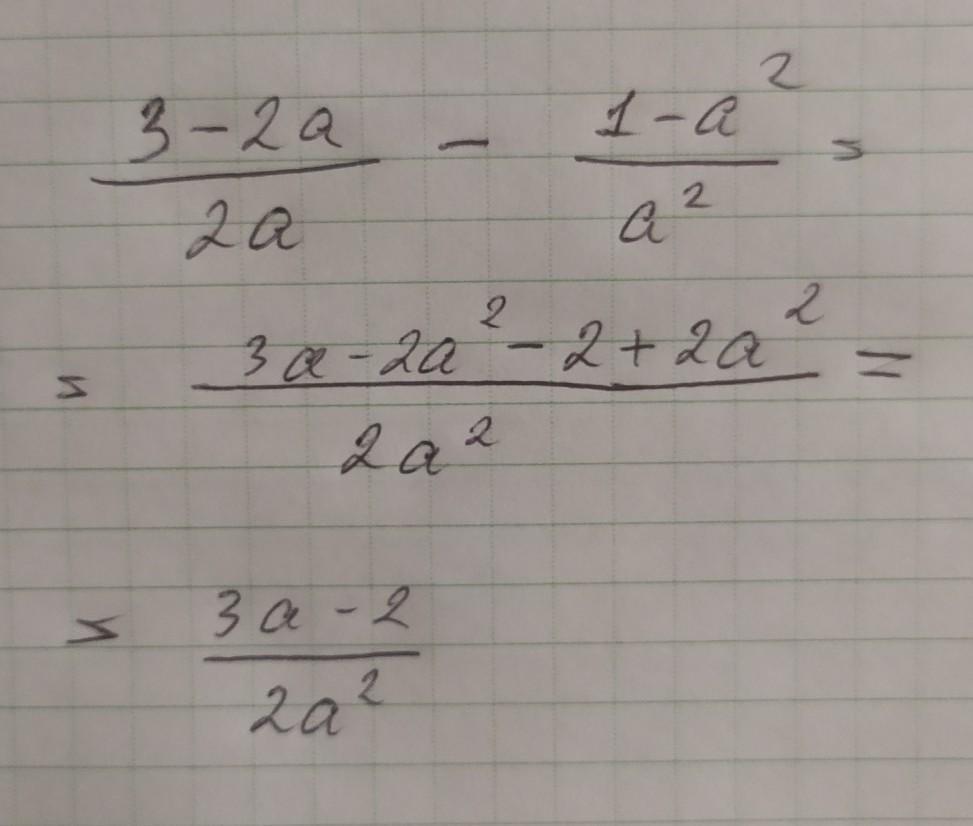 (3-2a)/(2a) - (1-a²)/(a²) =
= (3a-2a²-2+2a²)/(2a²) =
= (3a-2)/(2a²)